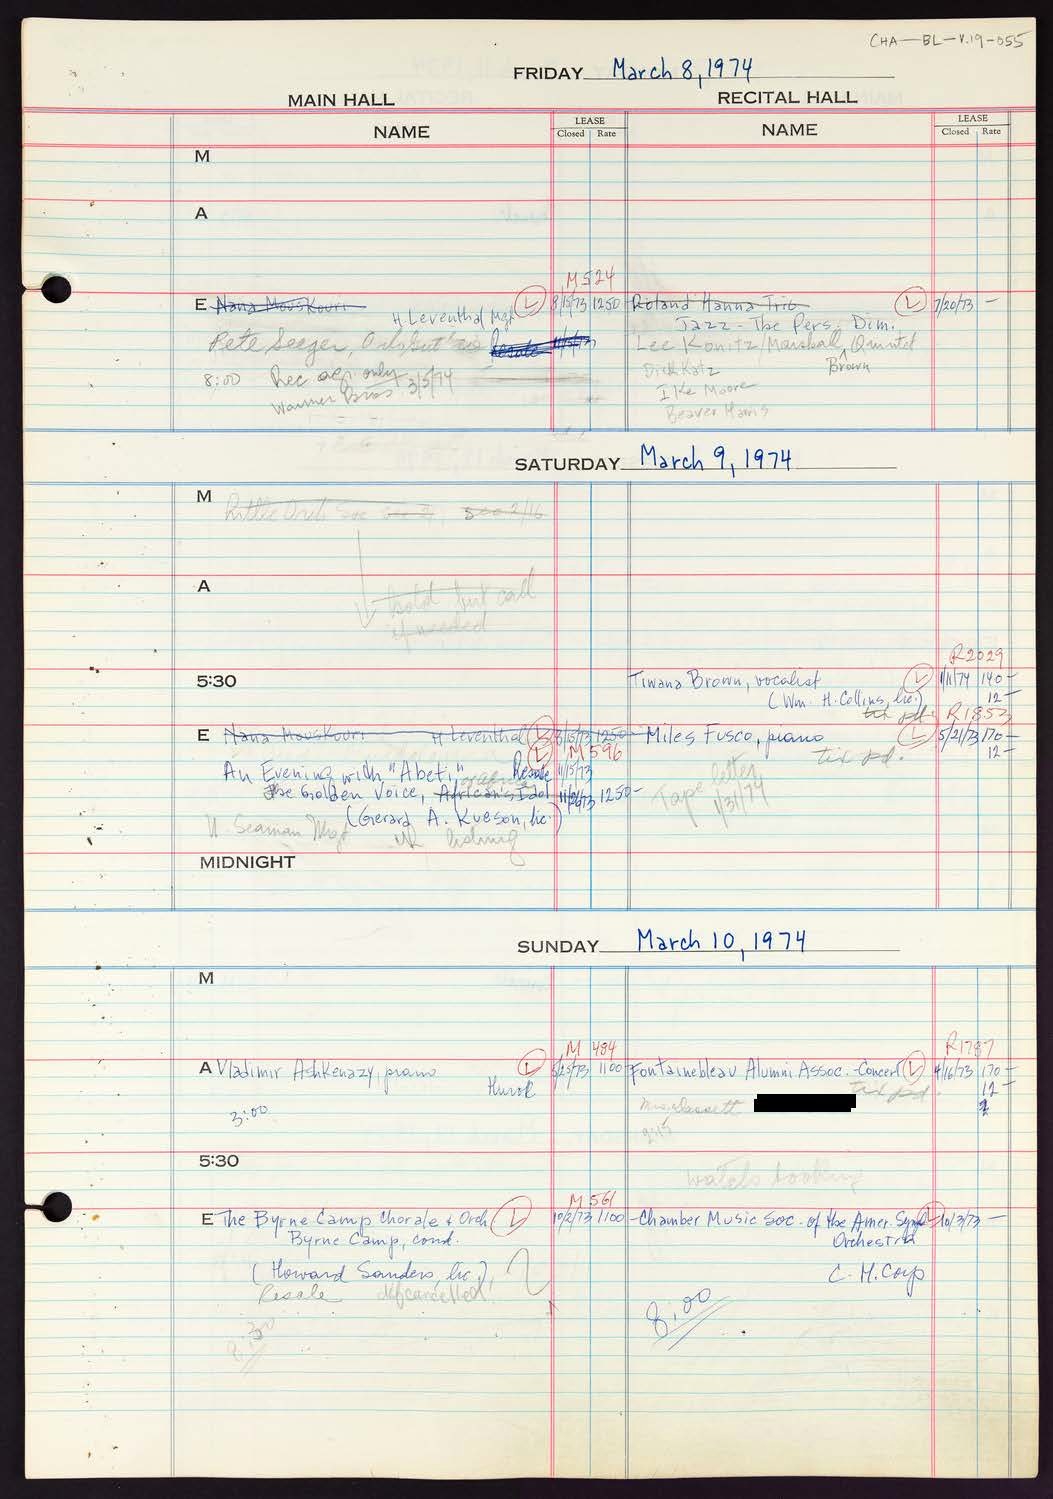 CHA-BL-V.19-055
FRIDAY March 8, 1974
MAIN HALL RECITAL HALL
NAME LEASE Closed Rate NAME LEASE Closed Rate
M
A
M524
E Nana Mouskouri L 8/15/73 1250 Roland Hanna Trio L 7/20/73 -
H Leventhal Mgt Jazz - The Pers. Dim.
Pete Seeger, Resale 11/15/73 Lee Konitz/Marshall Brown Quintet
8:00 Rec agr. only 3/5/74 Dick Katz
Warner Bros Ike Moore
Beaver Harris
SATURDAY March 9, 1974
M Little Orch Soc see 2/16
A
hold but call
if needed
R2029
5:30 Tiwana Brown, vocalist L 1/11/74 140-
(Wm. H. Collins, Inc.) 12-
tix pd. R1853
E Nana Mouskouri H Leventhal L 8/15/73 1250- Miles Fusco, piano L 5/21/73 170-
L M596 tix pd. 12-
An Evening with "Abeti," Resale 11/15/73
The Golden Voice, African's Idol 1250- Tape letter
(Gerard A. Kueson, Inc.) 1/31/74
Seaman Mgt listing
MIDNIGHT
SUNDAY March 10, 1974
M
M 494 R1787
A Vladimir Ashkenazy, piano L 5/25/73 1100 Fontainebleau Alumni Assoc.-Concert L 4/16/73 170-
Hurok tix pd. 12-
3:00
5:30
watch booking
M 561
E The Byrne Camp Chorale & Orch L 10/2/73 1100- Chamber Music Soc. of the Amer. Symp L 10/3/73 -
Byrne Camp, cond. Orchestra
(Howard Sanders, Inc.), C. H. Corp
Resale if cancelled
8:30 8:00